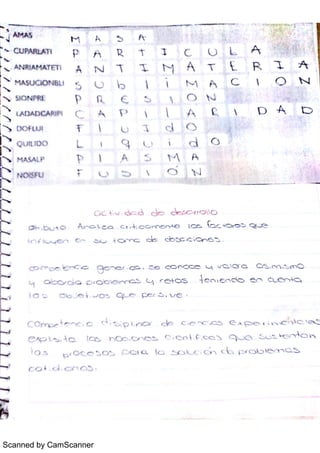 AMAS M A S A
CUPARLATI P A R T I C U L A
ANRIAMATETI A N T I M A T E R I A
MASUCIONBLI S U b l i M A C I O N
SIONPRE P R E S I O N
LADADCARIPI C A P I L A R I D A D
DOFLUI F L U I d O
QUILIDO L i q U i d O
MASALP P l A S M A
NOISFU F U S I O N
actividad de desarrollo
atributo. Analiza criticamente los factores que
influyen en su toma de desiciones.
competencia generica. se conoce y valora asimismo
y aborda problemas y retos teniendo en cuenta
los objetivos que persive.
Competencia disiplinar de ciencias experimentales
explisita las nociones cientificas que sustentan
los procesos para la solucion de problemas
cotidianos.
Scanned by CamScanner